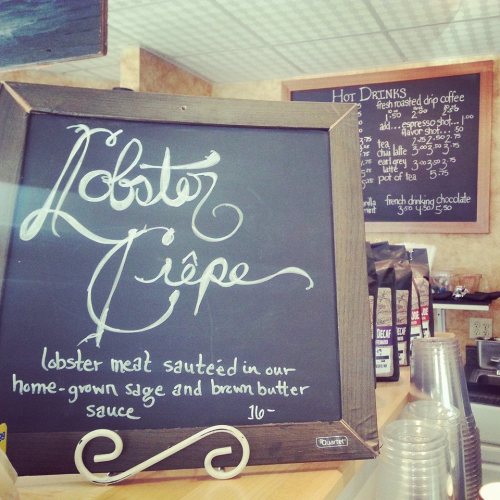 Lobster
Crêpe
lobster meat sauteéd in our
home-grown sage and brown butter
sauce 16-
Quartet
HOT DRINKS
fresh roasted drip coffee
add... espresso shot... 1.00
flavor shot... .50
tea
chai latte
earl grey
latte
pot of tea 5.75
french drinking chocolate
3.50 4.50 5.50
DECAF